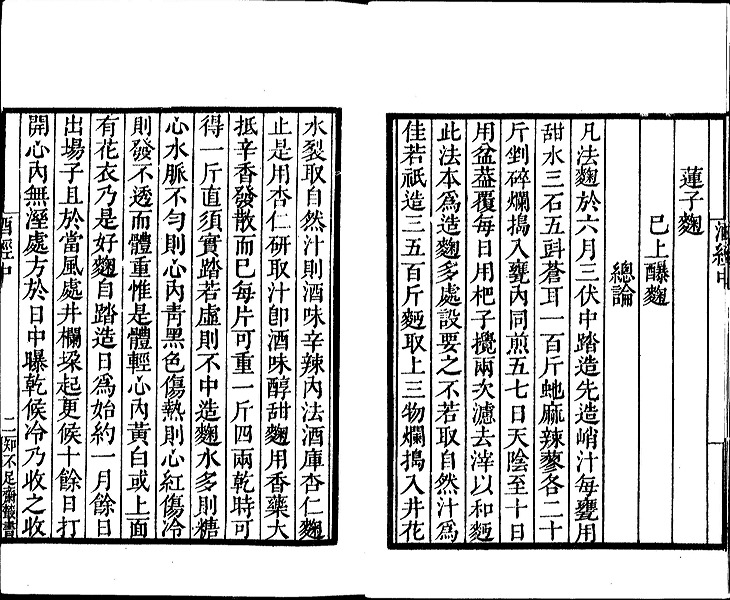 蓮子麴
已上醲麴
總論
凡法麴於六月三伏中踏造先造峭汁每甕用
甜水三石五㪷蒼耳一百斤虵麻辣蓼各二十
斤剉碎爛搗入甕內同煎五七日天陰至十日
用盆葢覆每日用杷子攪兩次濾去滓以和麪
此法本爲造麴多處設要之不若取自然汁爲
佳若祇造三五百斤麪取上三物爛搗入井花
酒經中
水裂取自然汁則酒味辛辣內法酒庫杏仁麴
止是用杏仁研取汁卽酒味醇甜麴用香藥大
抵辛香發散而已每片可重一斤四兩乾時可
得一斤直須實踏若虛則不中造麴水多則糖
心水脈不勻則心內靑黑色傷熱則心紅傷冷
則發不透而體重惟是體輕心內黃白或上面
有花衣乃是好麴自踏造日爲始約一月餘日
出場子且於當風處井欄垜起更候十餘日打
開心內無溼處方於日中曝乾候冷乃收之收
酒經中
二 知不足齋叢書